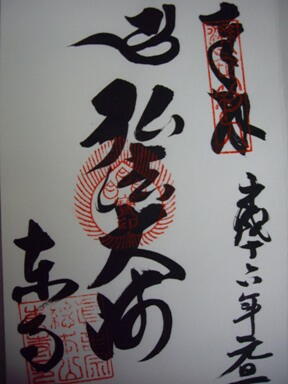 奉拝
平成十六年元旦
弘法大師
東寺